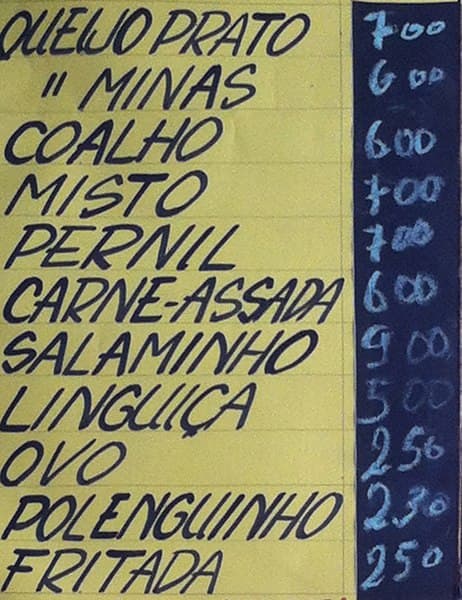 QUEIJO PRATO 700
" MINAS 600
COALHO 600
MISTO 700
PERNIL 700
CARNE-ASSADA 600
SALAMINHO 900
LINGUIÇA 500
OVO 250
POLENGUINHO 230
FRITADA 250